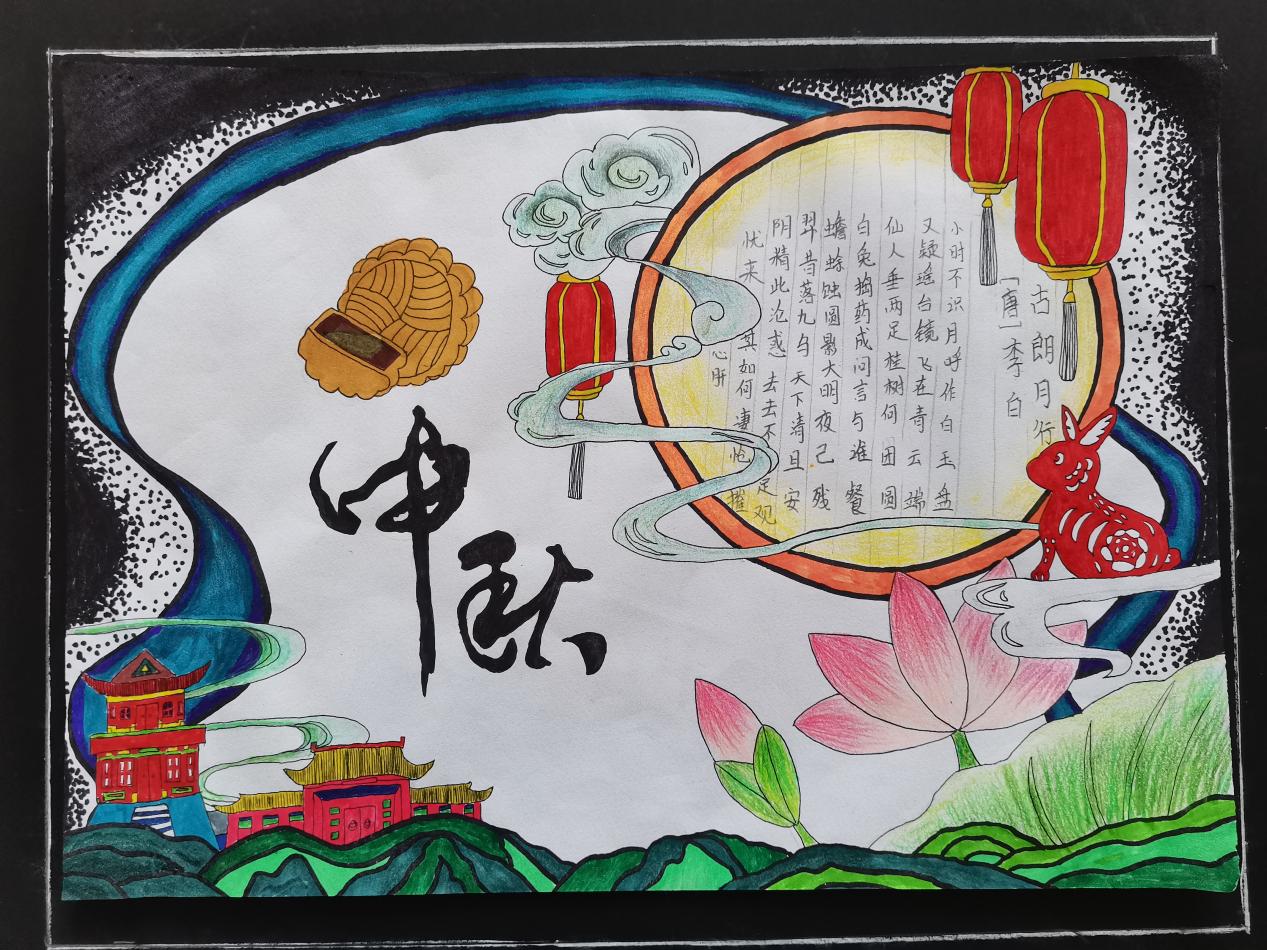 中秋
古朗月行
[唐]李白
小时不识月呼作白玉盘
又疑瑶台镜飞在青云端
仙人垂两足桂树何团圆
白兔捣药成问言与谁餐
蟾蜍蚀圆影大明夜己残
羿昔落九乌 天下清旦安
阴精此沧惑 去去不足观
忧来其如何凄怆摧
心肝